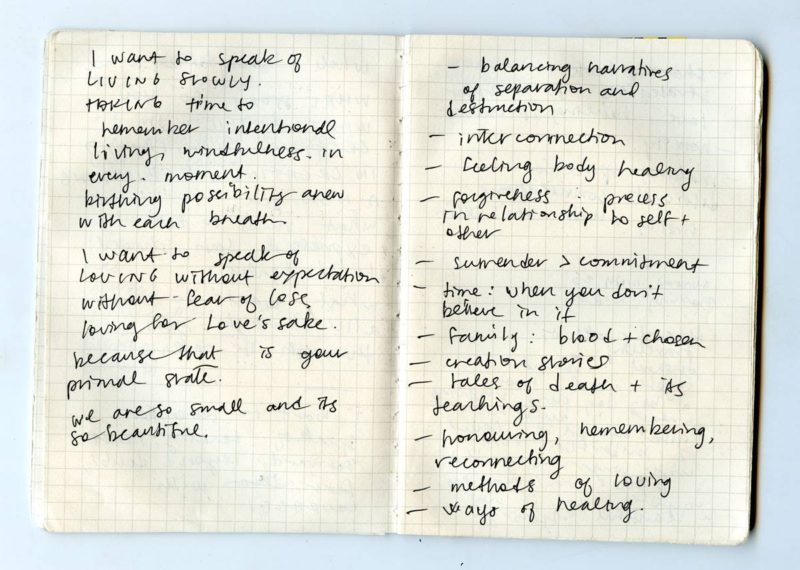 I want to speak of
LIVING slowly.
TAKING time to
remember intentional
living, mindfulness. in
every. moment.
birthing possibility anew
with each breath.
I want to speak of
LOVING without expectation
without fear of loss
loving for Love's sake.
because that is your
primal state.
we are so small and its
so beautiful.
- balancing narratives
of separation and
destruction
- interconnection
- feeling body healing
- forgiveness : process
in relationship to self +
other
- surrender > commitment
- time: when you don't
believe in it
- family: blood + chosen
- creation stories
- tales of death + its
teachings.
- honouring, remembering,
reconnecting
- methods of loving
- ways of healing.